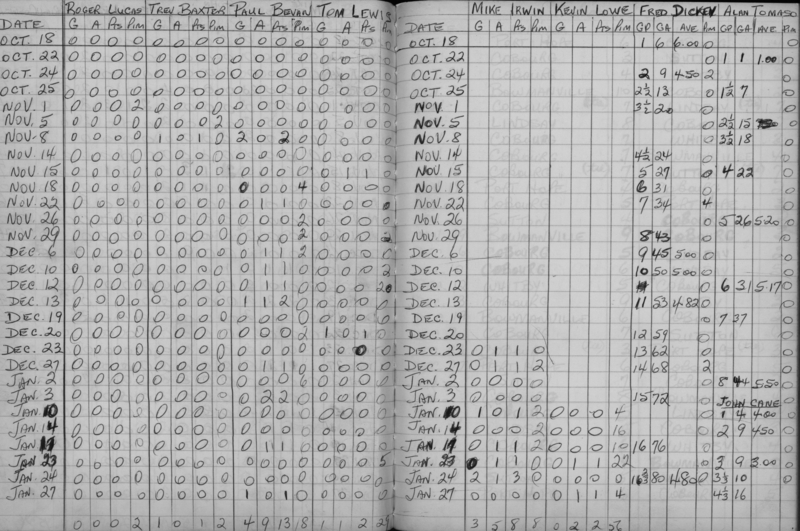 ROGER LUCAS TREV BAXTER PAUL BEVAN TOM LEWIS
DATE G A As Pim G A As Pim G A As Pim G A As Pim
OCT. 18 0 0 0 0 0 0 0 0 0 0 0 0 0 0 0 0
OCT. 22 0 0 0 0 0 0 0 0 0 0 0 0 0 0 0 0
OCT. 24 0 0 0 0 0 0 0 0 0 0 0 0 0 0 0 0
OCT. 25 0 0 0 0 0 0 0 0 0 0 0 0 0 0 0 0
NOV. 1 0 0 0 2 0 0 0 0 0 0 0 0 0 0 0 0
NOV. 5 0 0 0 0 0 0 0 2 0 0 0 0 0 0 0 0
NOV. 8 0 0 0 0 1 0 1 0 2 0 2 0 0 0 0 0
NOV. 14 0 0 0 0 0 0 0 0 0 0 0 0 0 0 0 0
NOV. 15 0 0 0 0 0 0 0 0 0 0 0 0 0 1 1 0
NOV 18 0 0 0 0 0 0 0 0 0 0 0 4 0 0 0 0
NOV. 22 0 0 0 0 0 0 0 0 0 1 1 0 0 0 0 0
NOV. 26 0 0 0 0 0 0 0 0 0 0 0 2 0 0 0 0
NOV. 29 0 0 0 0 0 0 0 0 0 0 0 2 0 0 0
DEC. 6 0 0 0 0 0 0 0 0 0 1 1 2 0 0 0 0
DEC. 10 0 0 0 0 0 0 0 0 0 1 1 0 0 0 0 2
DEC. 12 0 0 0 0 0 0 0 0 0 1 1 0 0 0 0
DEC. 13 0 0 0 0 0 0 0 0 1 1 2 0 0 0 0 0
DEC. 19 0 0 0 0 0 0 0 0 0 0 0 0 0 0 0 0
DEC. 20 0 0 0 0 0 0 0 0 0 0 0 2 1 0 1 0
DEC. 23 0 0 0 0 0 0 0 0 0 0 0 0 0 0 0 0
DEC. 27 0 0 0 0 0 0 0 0 0 1 1 0 0 0 0 0
JAN. 2 0 0 0 0 0 0 0 0 0 0 0 6 0 0 0 0
JAN. 3 0 0 0 0 0 0 0 0 0 2 2 0 0 0 0 0
JAN. 10 0 0 0 0 0 0 0 0 0 0 0 0 0 0 0 0
JAN. 14 0 0 0 0 0 0 0 0 0 0 0 0 0 0 0 0
JAN. 17 0 0 0 0 0 0 0 0 0 1 1 0 0 0 0 0
JAN 23 0 0 0 0 0 0 0 0 0 0 0 0 0 0 0 5
JAN. 24 0 0 0 0 0 0 0 0 0 0 0 0 0 0 0 0
JAN. 27 0 0 0 0 0 0 0 0 1 0 1 0 0 0 0 0
0 0 0 2 1 0 1 2 4 9 13 18 1 1 2
MIKE IRWIN KEVIN LOWE FRED DICKEY ALAN TOMASO
DATE G A As Pim G A As Pim GP GA AVE Pim GP GA AVE Pim
OCT. 18 1 6 6.00 0
OCT. 22 1 1 1.00
OCT. 24 2 9 4.50 2
OCT. 25 2½ 13 1½ 7
NOV. 1 3½ 20
NOV. 5 2½ 15
NOV. 8 3½ 18
NOV. 14 4½ 24
NOV. 15 5 27 4 22
NOV. 18 6 31
NOV. 22 7 34 4
NOV. 26 5 26 5.20
NOV. 29 8 43
DEC. 6 9 45 5.00
DEC. 10 10 50 5.00
DEC. 12 6 31 5.17
DEC. 13 11 53 4.82
DEC. 19 7 37
DEC. 20 12 59
DEC. 23 0 1 1 0 13 62
DEC. 27 0 1 1 2 14 68 2
JAN. 2 0 0 0 0 8 44 5.50
JAN. 3 0 0 0 0 15 72 JOHN CANE
JAN. 10 1 0 1 2 0 0 0 4 1 4 4.00
JAN. 14 0 0 0 2 0 0 0 16 2 9 4.50
JAN. 17 0 1 1 2 0 0 0 10 16 76
JAN. 23 0 1 1 0 0 1 1 22 3 9 3.00
JAN. 24 2 1 3 0 0 0 0 0 80 4.80 3⅓ 10
JAN. 27 0 0 0 0 0 1 1 4 4⅓ 16
3 5 8 8 0 2 2 56